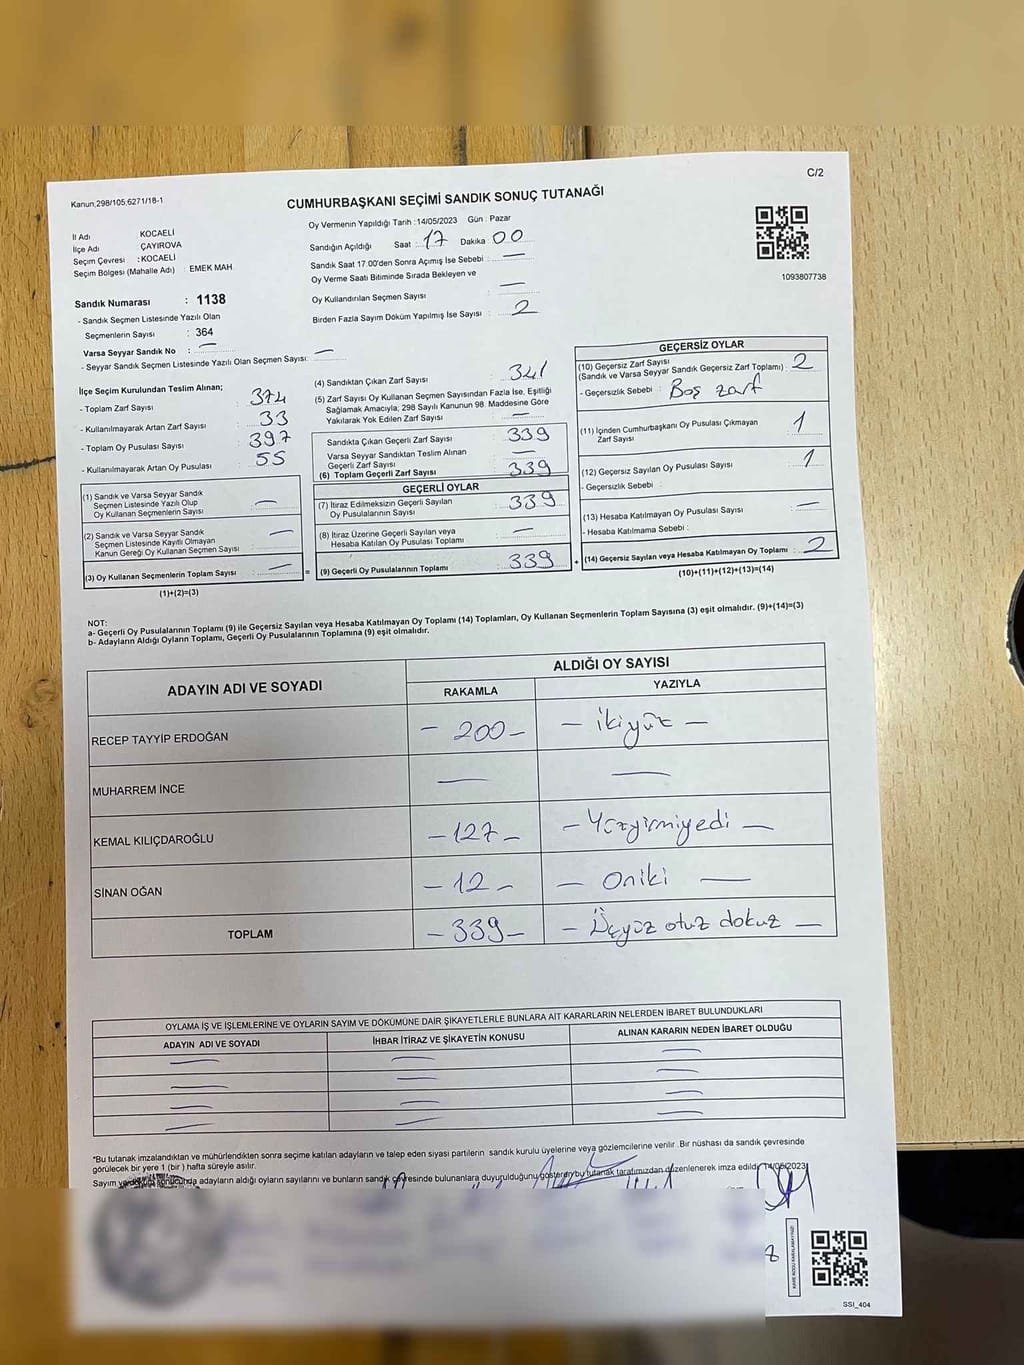 C/2
Kanun,298/105,6271/18-1
CUMHURBAŞKANI SEÇİMİ SANDIK SONUÇ TUTANAĞI
İl Adı KOCAELİ
İlçe Adı : ÇAYIROVA
Seçim Çevresi : KOCAELİ
Seçim Bölgesi (Mahalle Adı) : EMEK MAH
Sandık Numarası : 1138
- Sandık Seçmen Listesinde Yazılı Olan
Seçmenlerin Sayısı : 364
Varsa Seyyar Sandık No : —
- Seyyar Sandık Seçmen Listesinde Yazılı Olan Seçmen Sayısı: —
Oy Vermenin Yapıldığı Tarih :14/05/2023 Gün : Pazar
Sandığın Açıldığı Saat : 17 Dakika : 00
Sandık Saat 17.00'den Sonra Açımış İse Sebebi : —
Oy Verme Saati Bitiminde Sırada Bekleyen ve
Oy Kullandırılan Seçmen Sayısı : —
Birden Fazla Sayım Döküm Yapılmış İse Sayısı : 2
1093807738
İlçe Seçim Kurulundan Teslim Alınan;
- Toplam Zarf Sayısı : 374
- Kullanılmayarak Artan Zarf Sayısı : 33
- Toplam Oy Pusulası Sayısı : 397
- Kullanılmayarak Artan Oy Pusulası : 55
(1) Sandık ve Varsa Seyyar Sandık
Seçmen Listesinde Yazılı Olup
Oy Kullanan Seçmenlerin Sayısı : —
(2) Sandık ve Varsa Seyyar Sandık
Seçmen Listesinde Kayıtlı Olmayan
Kanun Gereği Oy Kullanan Seçmen Sayısı : —
(3) Oy Kullanan Seçmenlerin Toplam Sayısı : — =
(1)+(2)=(3)
(4) Sandıktan Çıkan Zarf Sayısı : 341
(5) Zarf Sayısı Oy Kullanan Seçmen Sayısından Fazla İse, Eşitliği
Sağlamak Amacıyla, 298 Sayılı Kanunun 98. Maddesine Göre
Yakılarak Yok Edilen Zarf Sayısı : —
Sandıkta Çıkan Geçerli Zarf Sayısı : 339
Varsa Seyyar Sandıktan Teslim Alınan
Geçerli Zarf Sayısı : —
(6) Toplam Geçerli Zarf Sayısı : 339
GEÇERLİ OYLAR
(7) İtiraz Edilmeksizin Geçerli Sayılan
Oy Pusulalarının Sayısı : 339
(8) İtiraz Üzerine Geçerli Sayılan veya
Hesaba Katılan Oy Pusulası Toplamı : —
(9) Geçerli Oy Pusulalarının Toplamı : 339 +
GEÇERSİZ OYLAR
(10) Geçersiz Zarf Sayısı
(Sandık ve Varsa Seyyar Sandık Geçersiz Zarf Toplamı) : 2
- Geçersizlik Sebebi : Boş zarf
(11) İçinden Cumhurbaşkanı Oy Pusulası Çıkmayan
Zarf Sayısı : 1
(12) Geçersiz Sayılan Oy Pusulası Sayısı : 1
- Geçersizlik Sebebi :
(13) Hesaba Katılmayan Oy Pusulası Sayısı : —
- Hesaba Katılmama Sebebi :
(14) Geçersiz Sayılan veya Hesaba Katılmayan Oy Toplamı : 2
(10)+(11)+(12)+(13)=(14)
NOT:
a- Geçerli Oy Pusulalarının Toplamı (9) ile Geçersiz Sayılan veya Hesaba Katılmayan Oy Toplamı (14) Toplamları, Oy Kullanan Seçmenlerin Toplam Sayısına (3) eşit olmalıdır. (9)+(14)=(3)
b- Adayların Aldığı Oyların Toplamı, Geçerli Oy Pusulalarının Toplamına (9) eşit olmalıdır.
ADAYIN ADI VE SOYADI ALDIĞI OY SAYISI
RAKAMLA YAZIYLA
RECEP TAYYİP ERDOĞAN – 200 – – ikiyüz –
MUHARREM İNCE — —
KEMAL KILIÇDAROĞLU – 127 – – Yüzyirmiyedi –
SİNAN OĞAN – 12 – – Oniki —
TOPLAM – 339 – – Üçyüz otuz dokuz –
OYLAMA İŞ VE İŞLEMLERİNE VE OYLARIN SAYIM VE DÖKÜMÜNE DAİR ŞİKAYETLERLE BUNLARA AİT KARARLARIN NELERDEN İBARET BULUNDUKLARI
ADAYIN ADI VE SOYADI İHBAR İTİRAZ VE ŞİKAYETİN KONUSU ALINAN KARARIN NEDEN İBARET OLDUĞU
— — —
— — —
— — —
— — —
*Bu tutanak imzalandıktan ve mühürlendikten sonra seçime katılan adayların ve talep eden siyasi partilerin sandık kurulu üyelerine veya gözlemcilerine verilir .Bir nüshası da sandık çevresinde
görülecek bir yere 1 (bir ) hafta süreyle asılır.
Sayım ve sonucunda adayların aldığı oyların sayılarını ve bunların sandık çevresinde bulunanlara duyurulduğunu gösteren bu tutanak tarafımızdan düzenlenerek imza edildi. 14/05/2023
8
SSI_404